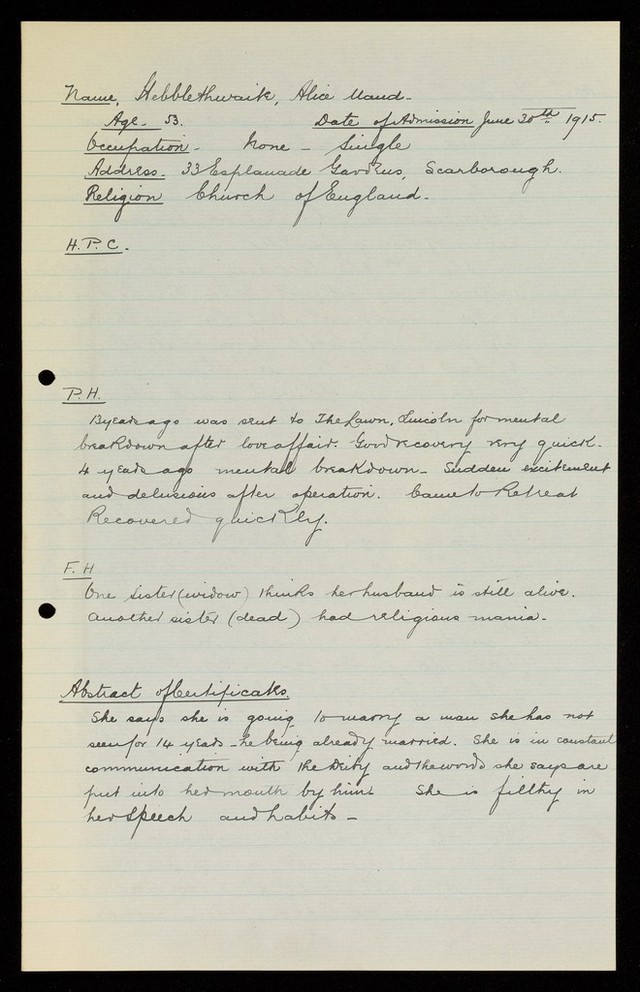 Name, Hebblethwaite, Alice Maud-
Age- 53. Date of Admission June 20th 1915.
Occupation- None - Single
Address. 33 Esplanade Gardens, Scarborough.
Religion Church of England.
H.P.C.
P.H.
13 years ago was sent to The Lawn, Lincoln for mental
breakdown after love affair. Good recovery very quick.
4 years ago mental breakdown- Sudden excitement
and delusions after operation. Came to Retreat
Recovered quickly.
F.H
One sister (widow) thinks her husband is still alive.
Another sister (dead) had religious mania.
Abstract of Certificates.
She says she is going to marry a man she has not
seen for 14 years - he being already married. She is in constant
communication with the Deity and the words she says are
put into her mouth by him. She is filthy in
her speech and habits -